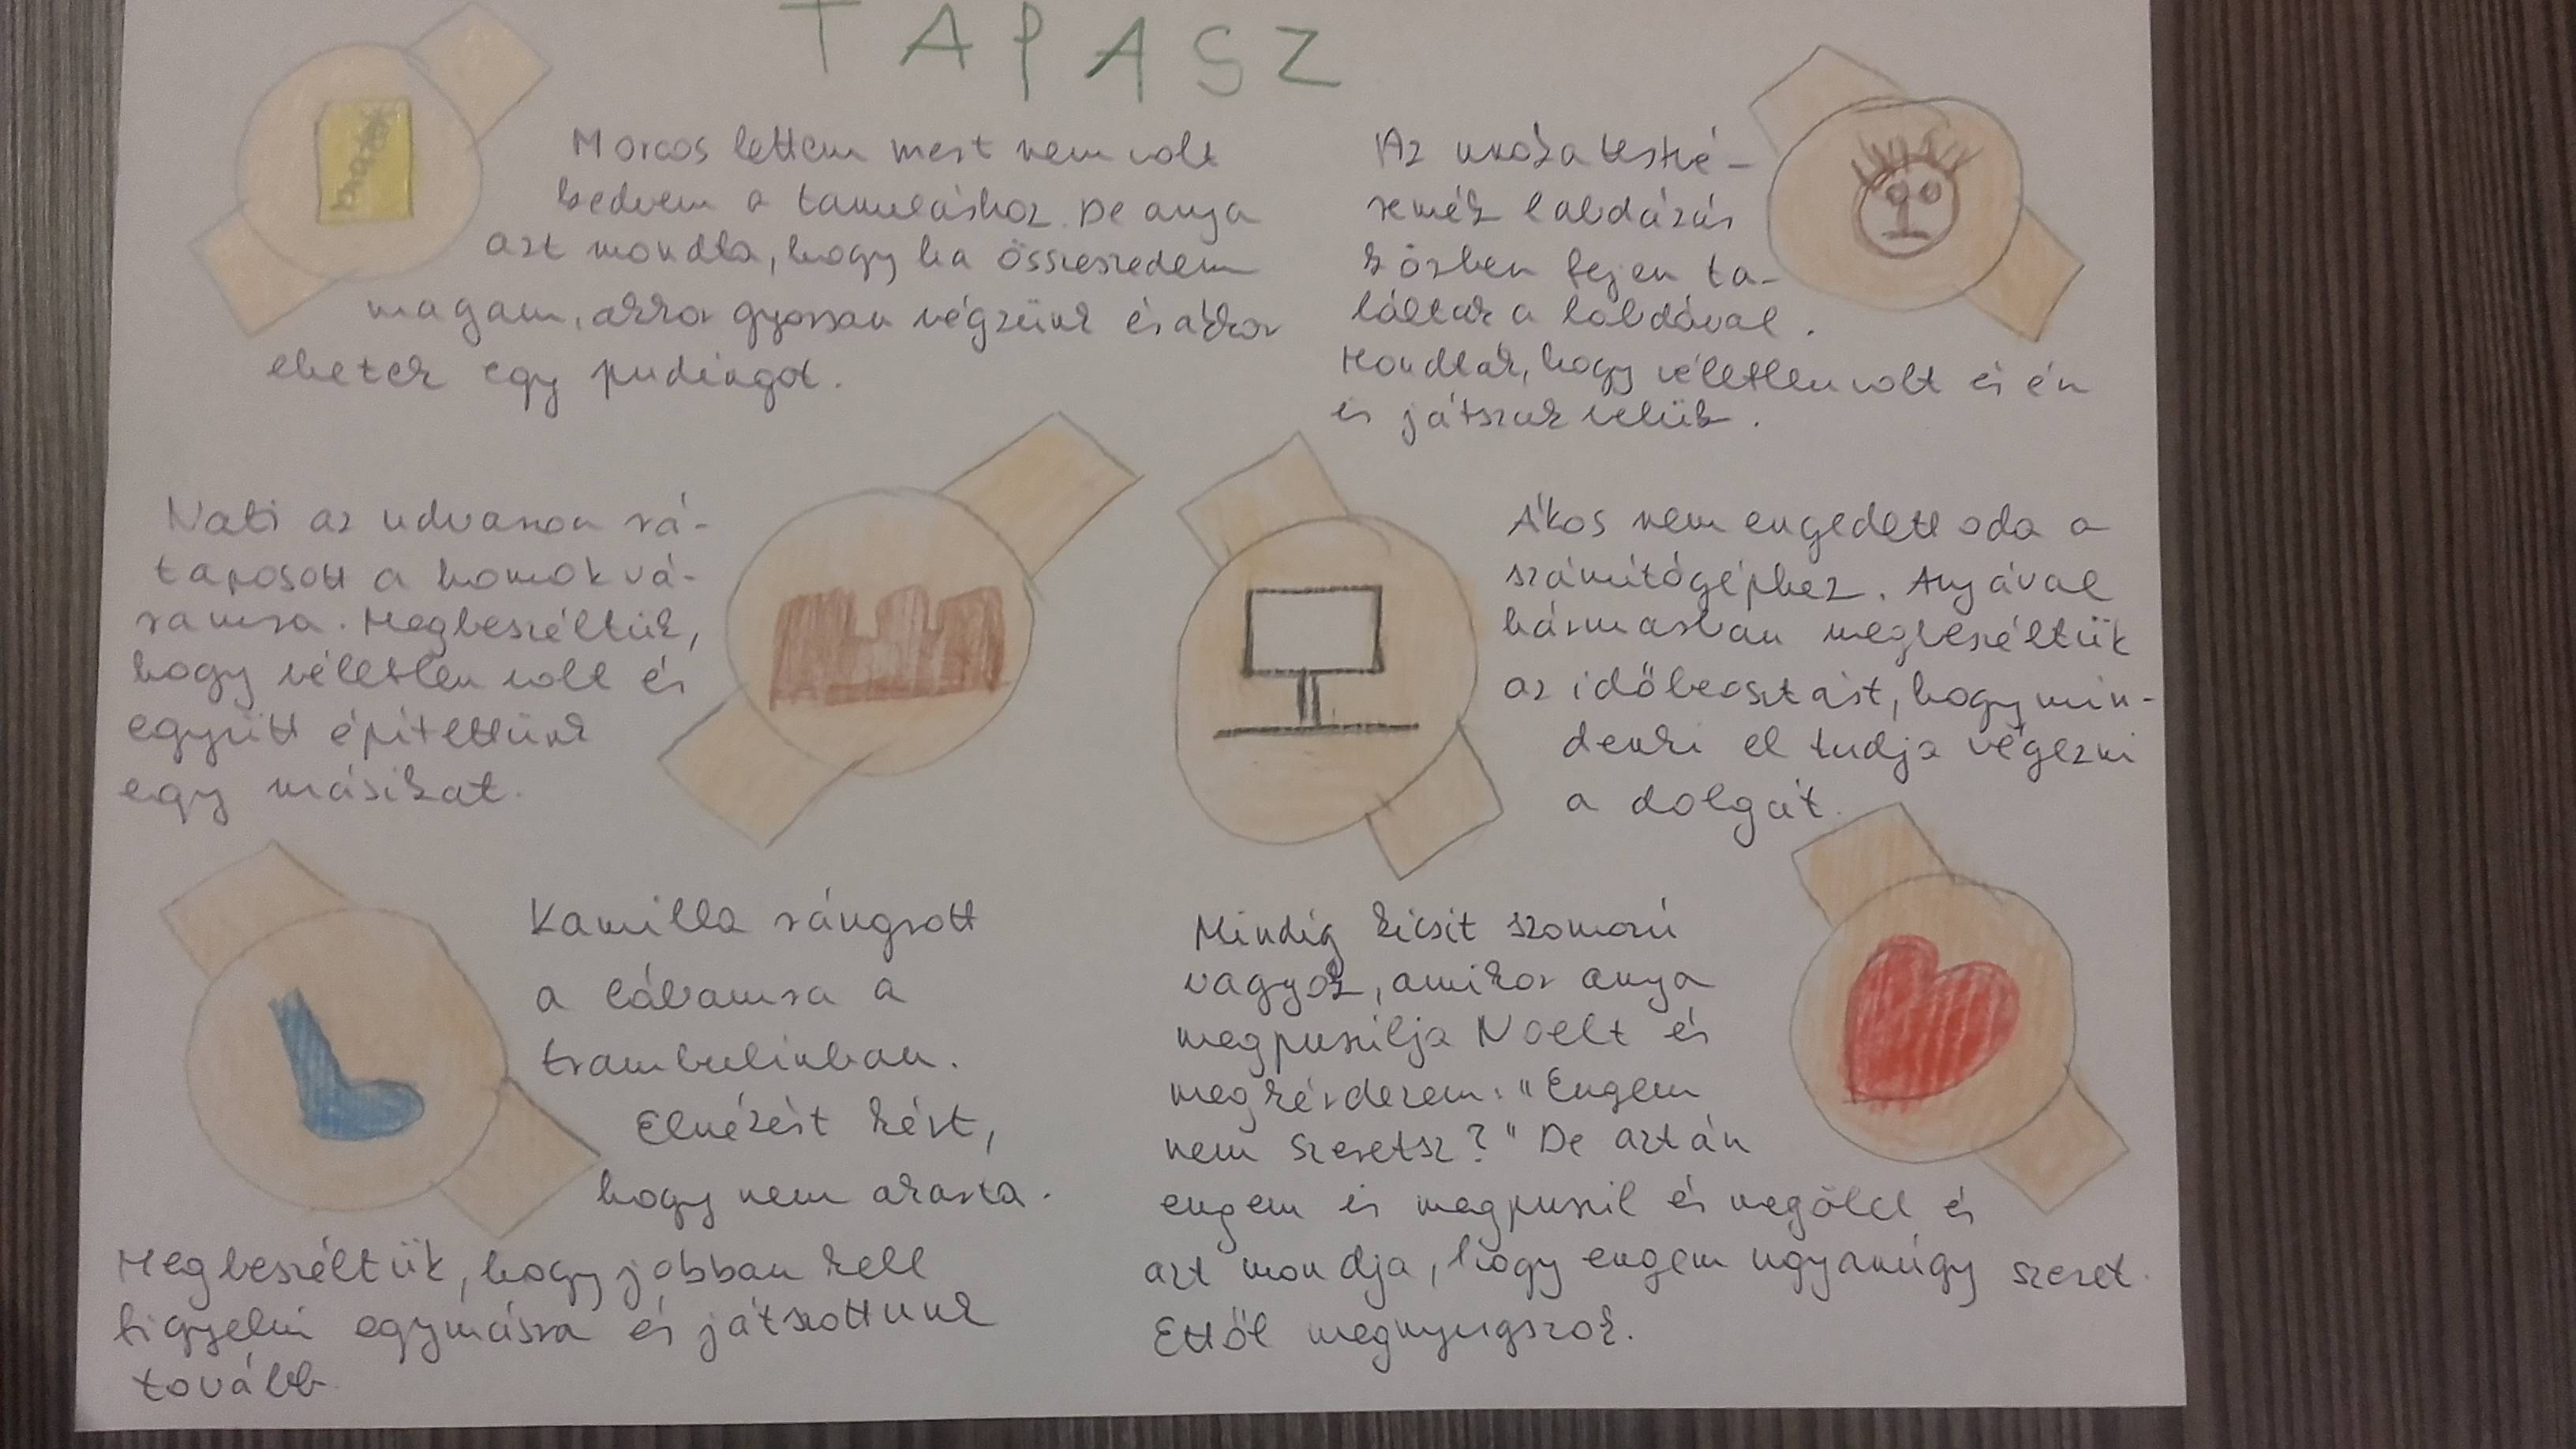 TAPASZ
Morcos lettem mert nem volt
kedvem a tanuláshoz. De anya
azt mondta, hogy ha összeszedem
magam, akkor gyorsan végzünk és akkor
ehetek egy pudingot.
Az unokatesté-
reimék labdázás
közben fejen ta-
láltak a labdával.
Mondták, hogy véletlen volt és én
is játszak velük.
Nati az udvaron rá-
taposott a homokvá-
ramra. Megbeszéltük,
hogy véletlen volt és
együtt építettünk
egy másikat.
Ákos nem engedett oda a
számítógéphez. Anyával
hármasban megbeszéltük
az időbeosztást, hogy min-
denki el tudja végezni
a dolgát.
Kamilla ráugrott
a lábamra a
trambulinban.
Elnézést kért,
hogy nem akarta.
Megbeszéltük, hogy jobban kell
figyelni egymásra és játszottunk
tovább.
Mindig kicsit szomorú
vagyok, amikor anya
megpuszilja Noelt és
megkérdezem: "Engem
nem szeretsz?" De aztán
engem is megpuszil és megölel és
azt mondja, hogy engem ugyanúgy szeret.
Ettől megnyugszok.